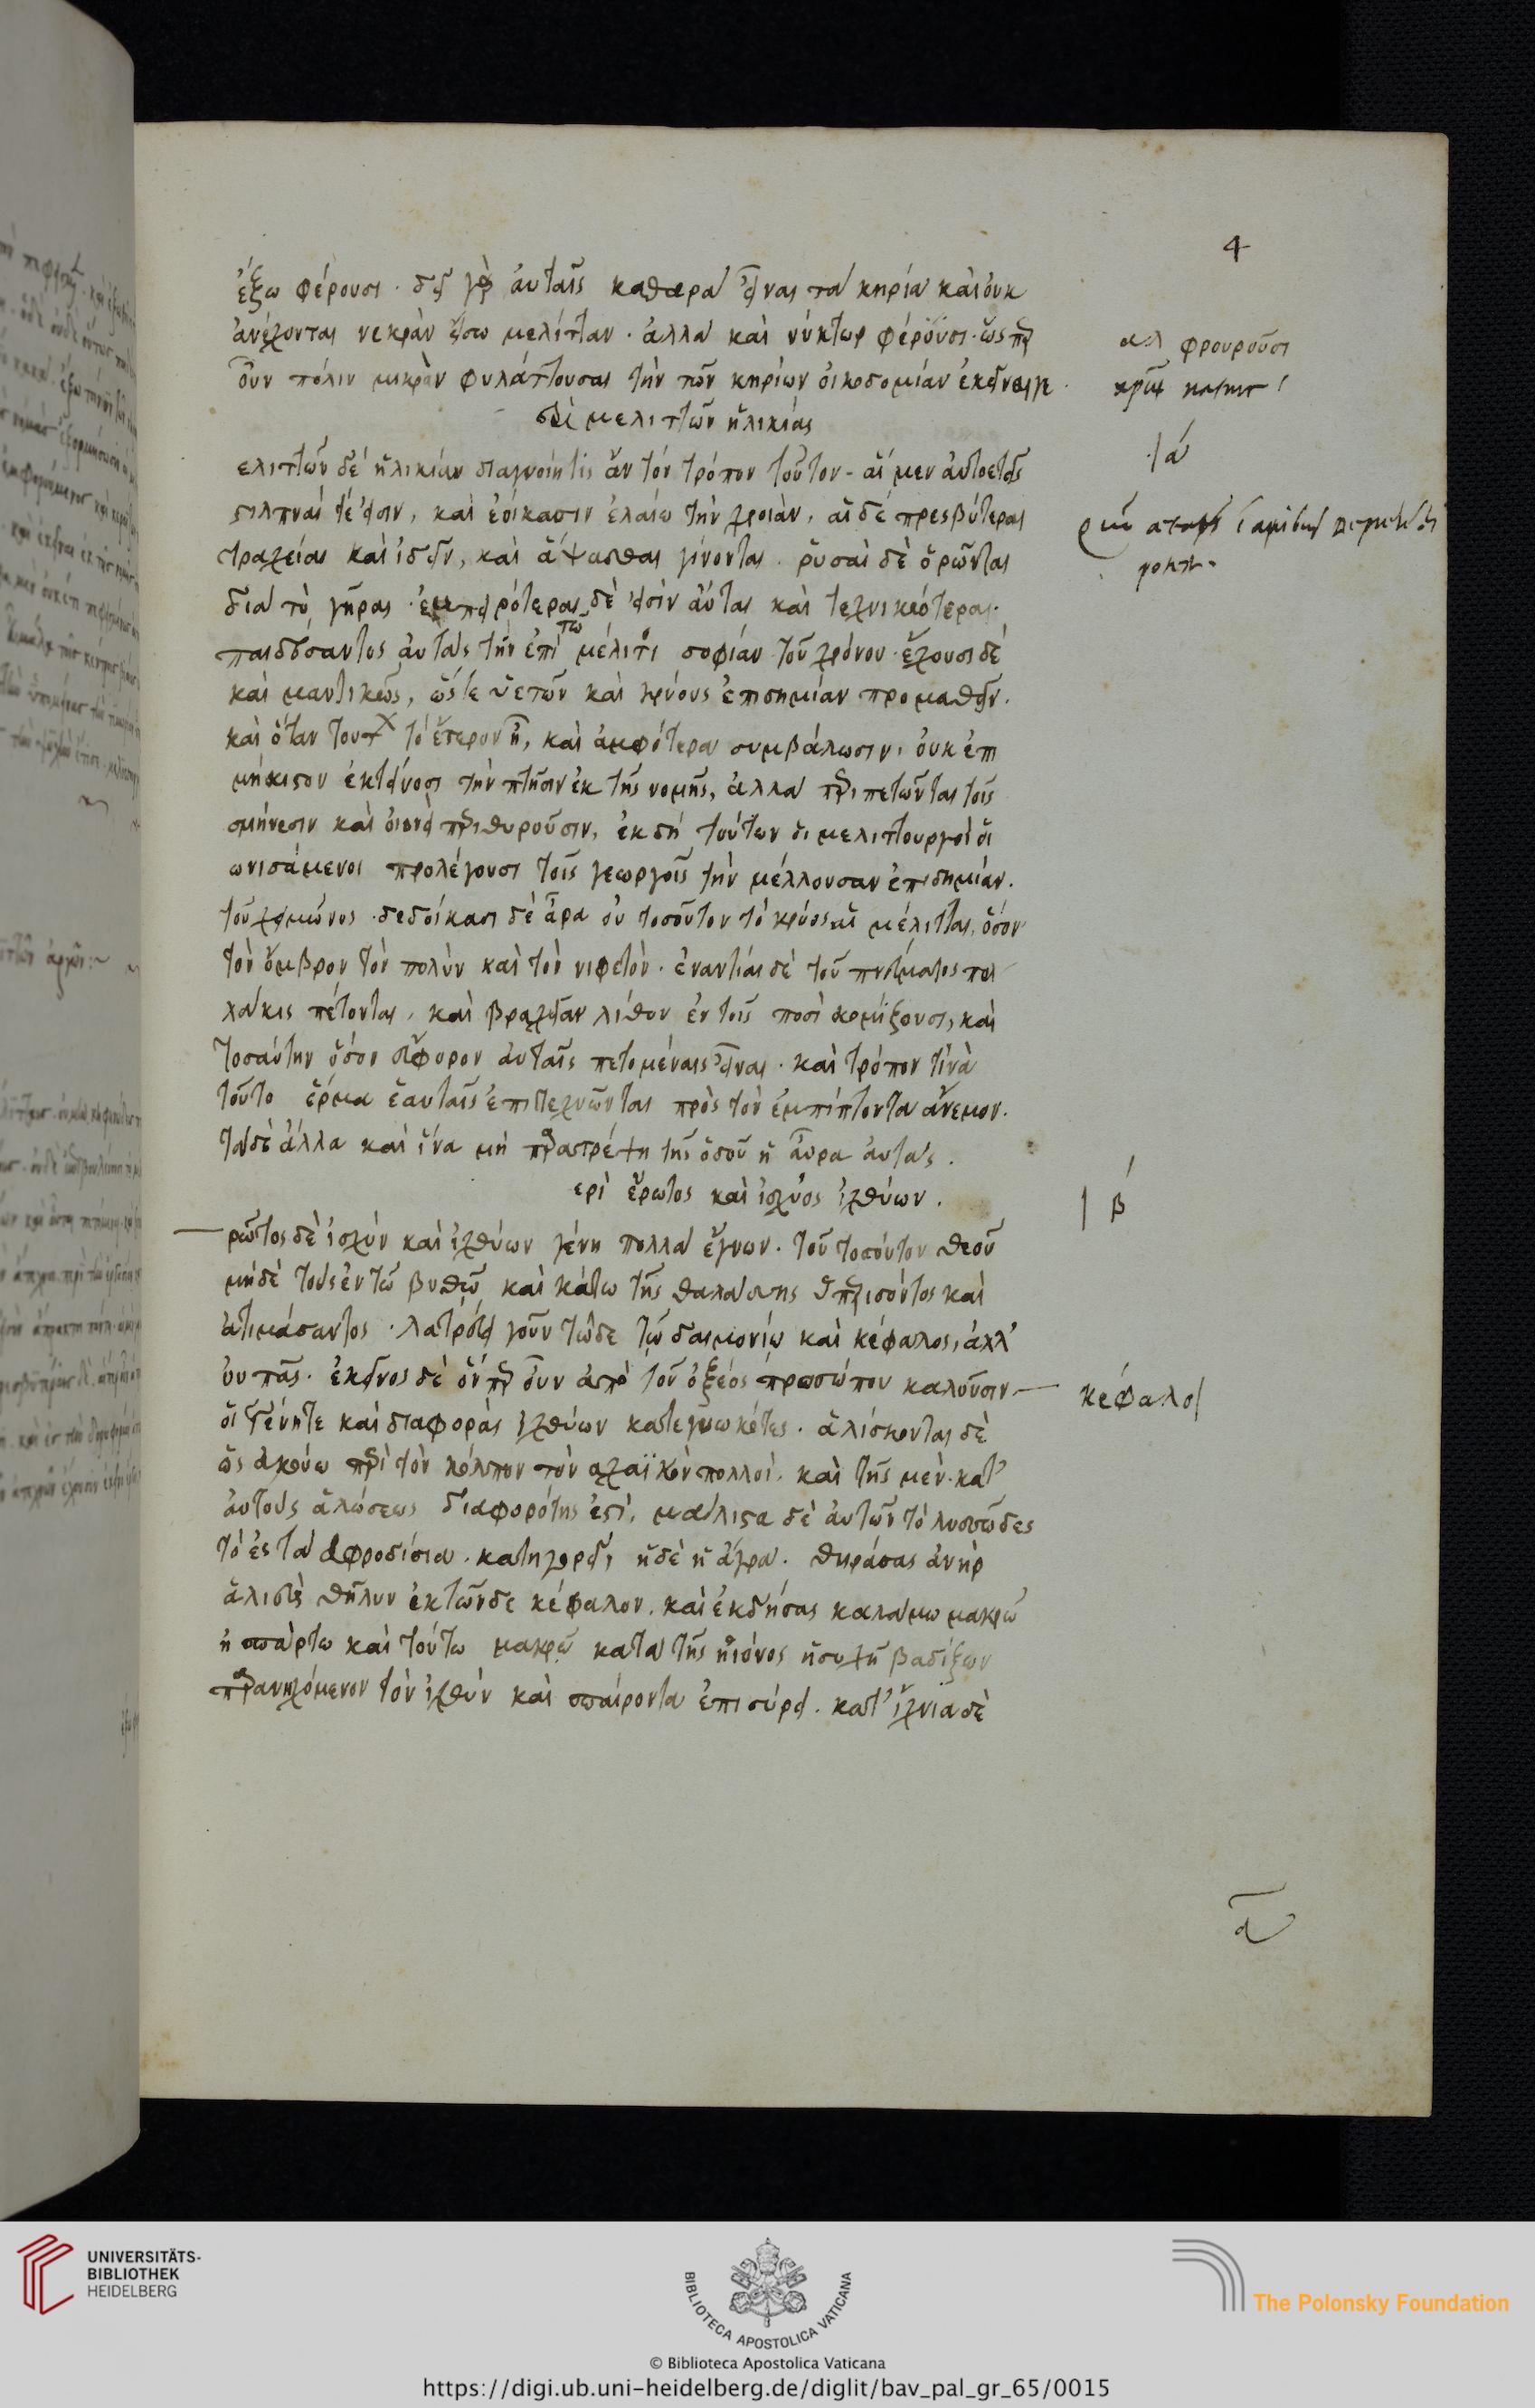 4
ἔξω φέρουσι · δεῖ γὰρ ἀυταῖς καθαρὰ εἶναι τὰ κηρία καὶ ὀυκ
ἀνέχονται νεκρὰν ἔσω μελίτταν · ἀλλὰ καὶ νύκτωρ φέρουσι · ὥσπερ
οὖν πόλιν μικρὰν φυλάττουσαι τὴν τῶν κηρίων ὀικοδομίαν
ἀλ φρουροῦσι
μελιττῶν ἡλικίας
ιά
ελιττῶν δὲ ἡλικίαν διαγνοίη τὶς ἂν τὸν τρόπον τοῦτον - αἱ μεν ἀυτοετεῖς
στιλπναί τέ εἰσιν, και ἐοίκασιν ἐλαίω τὴν χροιὰν, αἱ δὲ πρεσβύτεραι
τραχεῖαι καὶ ἰδεῖν, καὶ ἅψασθαι γίνονται · ῥυσαὶ δὲ ὁρῶνται
διὰ τὸ γῆρας · ἐμπειρότεραι δὲ εἰσὶν αὗται καὶ τεχνικώτεραι ·
παιδευσαντος ἀυτὰς τὴν ἐπὶ τῶ μέλιτι σοφίαν τοῦ χρόνου · ἔχουσι δὲ
και μαντικῶς, ὥστε ὑετῶν καὶ κρύους ἐπιδημίαν προμαθεῖν ·
καὶ ὅταν τουτ τὸ ἕτερον ἢ, καὶ ἀμφότερα συμβάλωσιν, ὀυκ ἐπι
μήκιστον ἐκτείνουσι τὴν πτῆσιν ἐκ τῆς νομῆς, ἀλλὰ περιπετῶνται τοῖς
σμήνεσιν καὶ ὁιονεὶ περιθυροῦσιν, ἐκ δὴ τούτων ὁι μελιττουργοὶ ὁι
ωνισάμενοι προλέγουσι τοῖς γεωργοῖς τὴν μέλλουσαν ἐπιδημίαν ·
τοῦ χειμῶνος · δεδοίκασι δὲ ἆρα ὀυ τοσοῦτον τὸ κρύος αἱ μέλιτται, ὅσον
τὸν ὄμβρον τὸν πολὺν καὶ τὸν νιφετὸν · ἐναντίαι δὲ τοῦ πνεύματος πολ
λάκις πέτονται, καὶ βραχεῖαν λίθον ἐν τοῖς ποσὶ κομίζουσι, καὶ
τοσαύτην ὅσον ἔυφορον ἀυταῖς πετομέναις εἶναι · καὶ τρόπον τινὰ
τοῦτο ἕρμα ἑαυταῖς ἐπιτεχνῶνται πρὸς τὸν ἐμπίπτοντα ἄνεμον ·
τά δὲ ἀλλα καὶ ἵνα μὴ παραστρέψη τῆς ὁδοῦ ἡ αὔρα ἀυτάς ·
ερὶ ἔρωτος καὶ ἰσχύος ἰχθύων .
β
ρωτος δὲ ἰσχὺν καὶ ἰχθύων γένη πολλὰ ἔγνων · τοῦ τοσούτου θεοῦ
μηδὲ τοὺς ἐν τῶ βυθῶ καὶ κάτω τῆς θαλάττης ὑπεριδόντος καὶ
ἀτιμάσαντος · λατρεύει γοῦν τῶδε τῶ δαιμονίω καὶ κέφαλος, ἀλλ'
ὀυ πᾶς · ἐκεῖνος δὲ ὅνπερ οὖν ἀπὸ τοῦ ὀξέος προσώπου καλοῦσιν
κέφαλοι
ὁι γένη τε καὶ διαφορὰς ἰχθύων κατεγνωκότες · ἁλίσκονται δὲ
ὡς ἀκούω περὶ τὸν κόλπον τὸν αχαϊκὸν πολλοὶ, καὶ τῆς μὲν κατ'
ἀυτοὺς ἁλώσεως διαφορότης ἐστὶ, μάλιστα δὲ ἀυτῶν τὸ λυσσῶδες
τὸ ἐς τὰ ἀφροδίσια · κατηγορεῖ, ἥδε ἡ ἄγρα · θηράσας ἀνὴρ
ἁλιεὺς θῆλυν ἐκ τῶνδε κέφαλον, καὶ ἐκδήσας καλάμω μακρῶ
ἢ σπάρτω καὶ τούτω μακρῶ κατὰ τῆς ἠϊόνος ἡσυχῆ βαδίζων
παρανηχόμενον τὸν ἰχθὺν καὶ σπαίροντα ἐπισύρει · κατ' ἴχνια δὲ
α
UNIVERSITÄTS-
BIBLIOTHEK
HEIDELBERG
BIBLIOTECA APOSTOLICA VATICANA
The Polonsky Foundation
© Biblioteca Apostolica Vaticana
https://digi.ub.uni-heidelberg.de/diglit/bav_pal_gr_65/0015